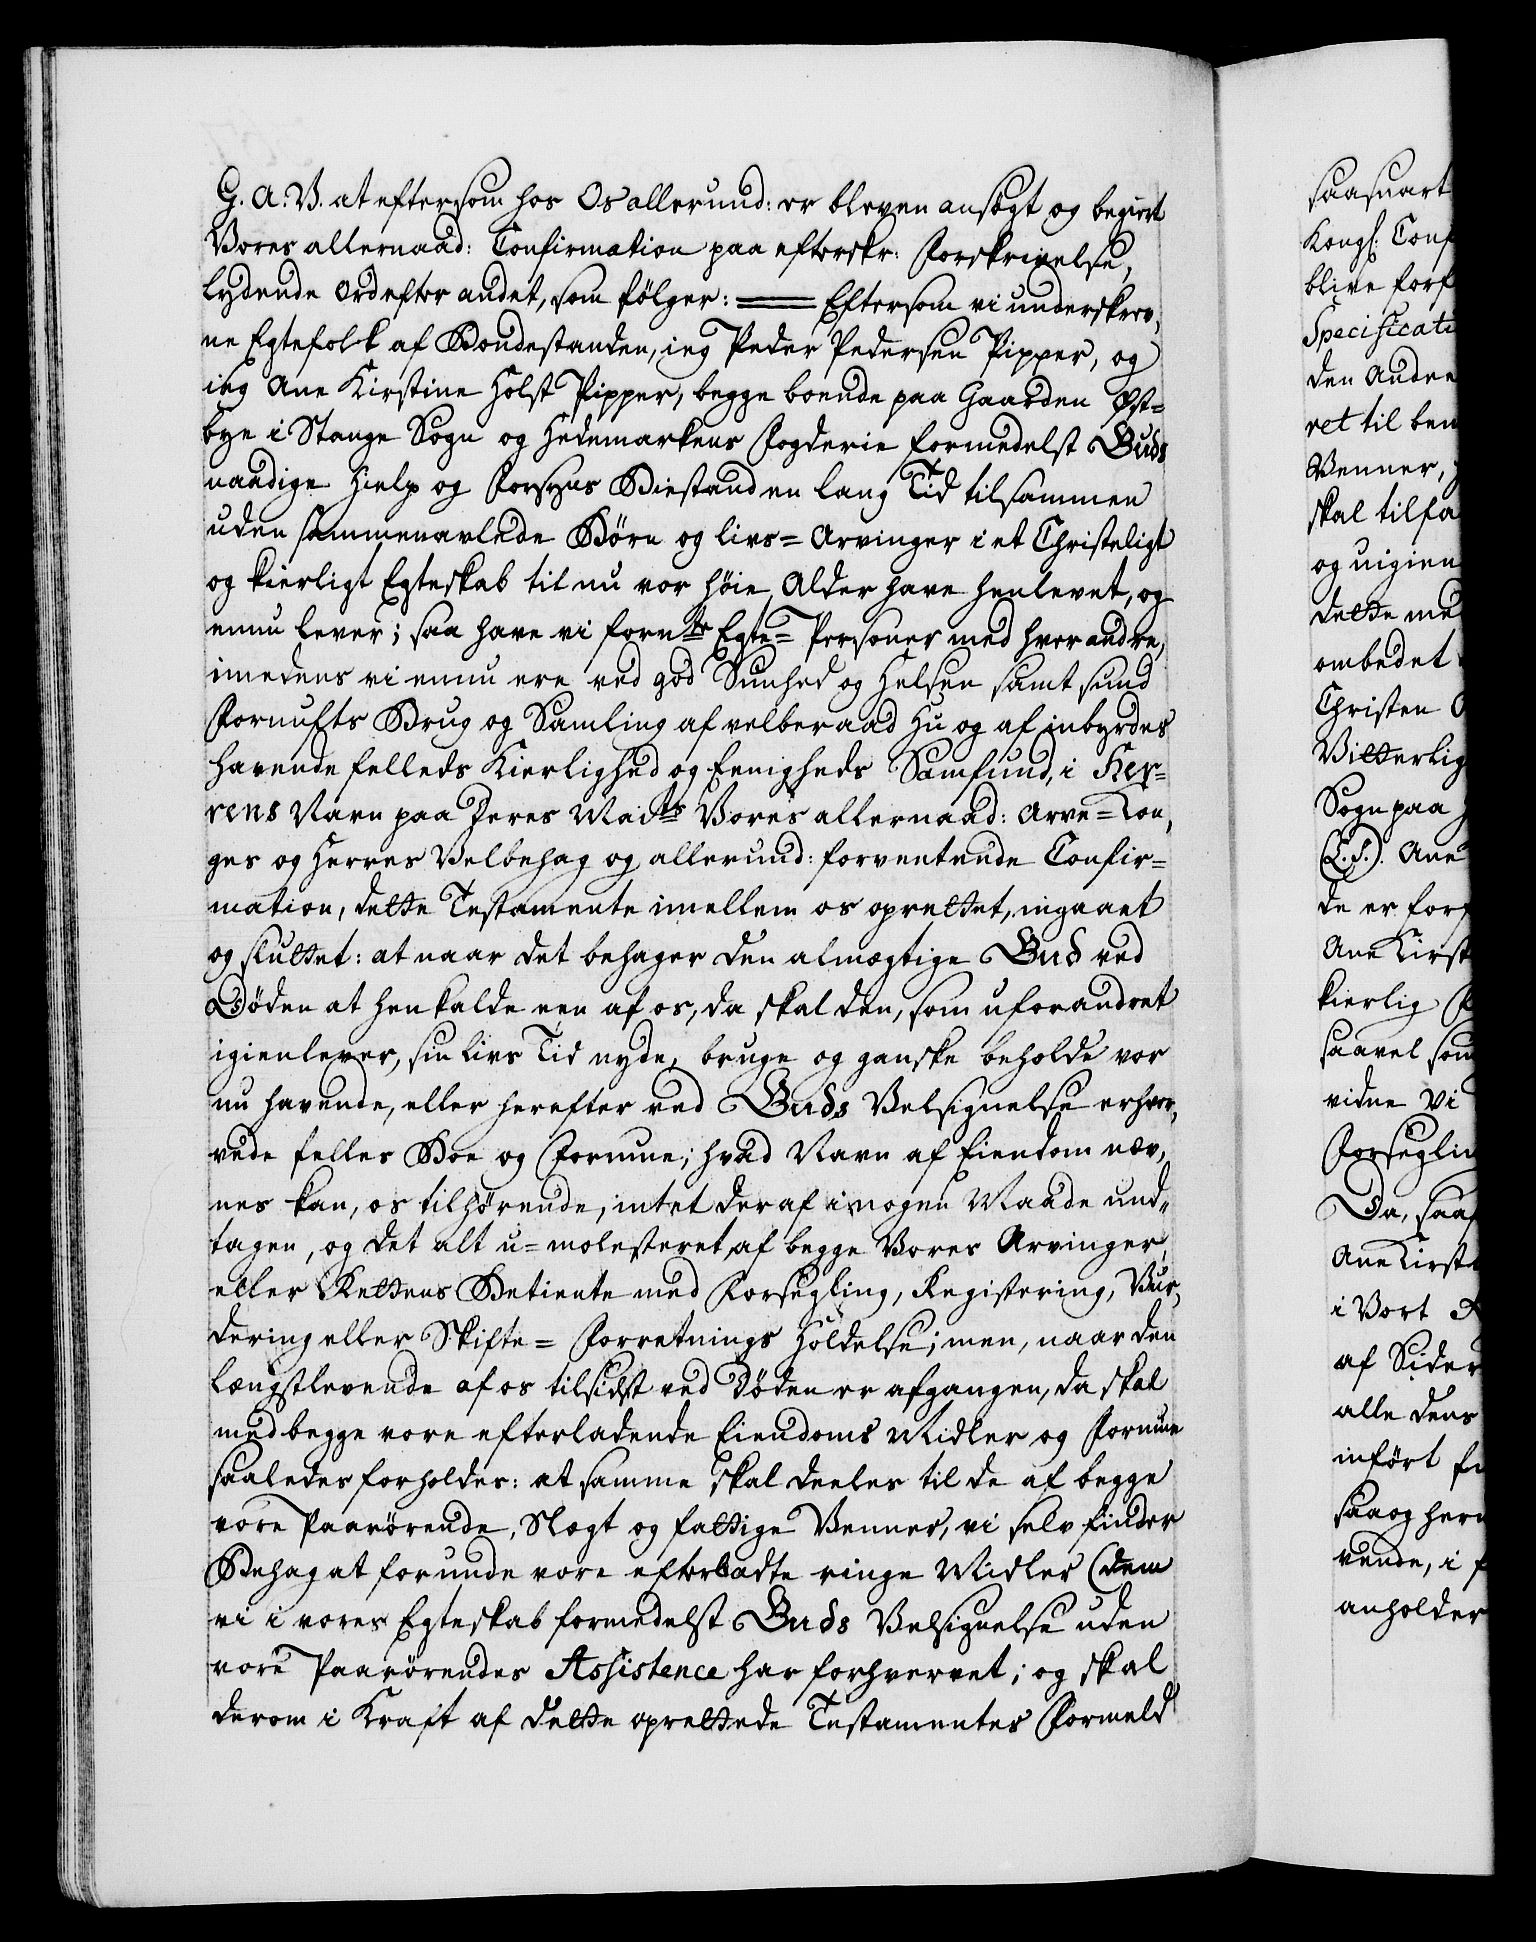 G. A. V. at eftersom hos Os allerund: er bleven ansögt og begiert
Vores allernaad: Confirmation paa efterskr: Forskrivelse,
lydende Ord efter andet, som fölger: == Eftersom vi underskrev,
ne Egtefolk af Bondestanden, ieg Peder Pedersen Pipper, og
ieg Ane Kirstine Holst Pipper, begge boende paa Gaarden Öst=
bye i Stange Sogn og Hedemarkens Fogderie formedelst Guds
naadige Hielp og Forsyns Biestand en lang Tid tilsammen
uden sammenavlede Börn og livs= Arvinger i et Christeligt
og kierligt Egteskab til nu vor höie Alder have henlevet, og
ennu lever; saa have vi fornte Egte= Personer med hverandre,
imedens vi ennu ere ved god Sunhed og Helsen samt sund
Fornufts Brug og Samling af velberaad Hu og af inbyrdes
havende felleds Kierlighed og Eenigheds Samfund, i Her=
rens Navn paa Deres Maits Vores allernaad: Arve=Kon,
ges og Herres Velbehag og allerund: forventende Confir=
mation, dette Testamente imellem os oprettet, ingaaet
og sluttet: at naar det behager den almægtige Gud ved
Döden at henkalde een af os, da skal den, som uforandret
igienlever, sin livs Tid nyde, bruge og ganske beholde vor
nu havende, eller herefter ved Guds Velsignelse erhver,
vede felles Boe og Formue; hvad Navn af Eiendom næv,
nes kan, os tilhörende, intet deraf i nogen Maade und=
tagen, og det alt u=molesteret af begge Vores Arvinger,
eller Rettens Betiente med Forsegling, Registering, Vur,
dering eller Skifte= Forretnings Holdelse; men, naar den
længstlevende af os tilsidst ved Döden er afgangen, da skal
med begge vore efterladende Eiendoms Midler og Formue
saaledes forholdes: at samme skal deeles til de af begge
vore Paarörende, Slegt og fattige Venner, vi selv finder
Behag at forunde vore efterladte ringe Midler (dem
vi i vores Egteskab formedelst Guds Velsignelse uden
vore Paarörendes Assistence har forhvervet; og skal
derom i Kraft af dette oprettede Testamentes Formeld
saasnart
Kongl: Conf
blive forf
Specificati
den Anden
ret til ben
Venner,
skal tilfa
og uigien
dette med
ombedet
Christen
Vitterlig
Sogn paa
(L.S.). Ane
de er forf
Ane Kirst
kierlig
saavel som
vidne vi
Forseglin
Da, saa
Ane Kirst
i Vort
af Sider
alle dens
infört
saa og her
vende, i
anholder